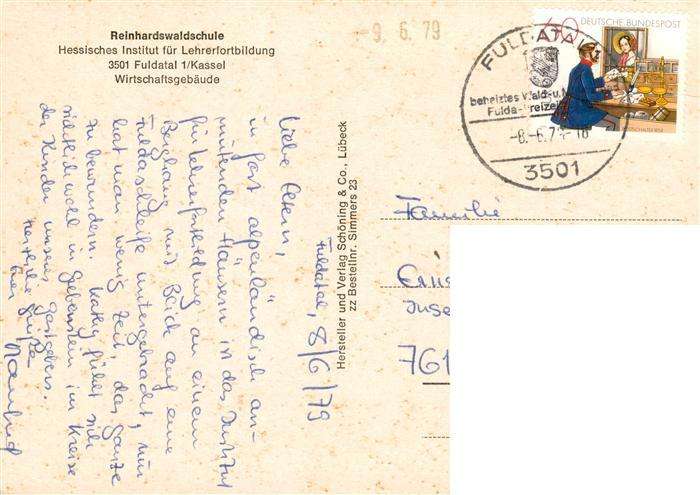 Reinhardswaldschule
Hessisches Institut für Lehrerfortbildung
3501 Fuldatal 1/Kassel
Wirtschaftsgebäude
-9. 6. 79
60 DEUTSCHE BUNDESPOST
FULDATAL
beheiztes Wald-u.
Fulda-Freizei
-8.-6.79-18
3501
Fuldatal, 8/6/79
Liebe Eltern,
in fast alpenländisch an-
mutenden Häusern ist das Institut
für Lehrerfortbildung an einem
Berghang mit Blick auf eine
Fuldaschleife untergebracht, nur
hat man wenig Zeit, das Ganze
zu bewundern. Kathy fühlt sich
sichtlich wohl in Gebenstein im Kreise
der Kinder unseres Gastgebers.
Herzliche Grüße
Euer Manfred
Hersteller und Verlag Schöning & Co., Lübeck
zz Bestellnr. Simmers 23
Familie
761